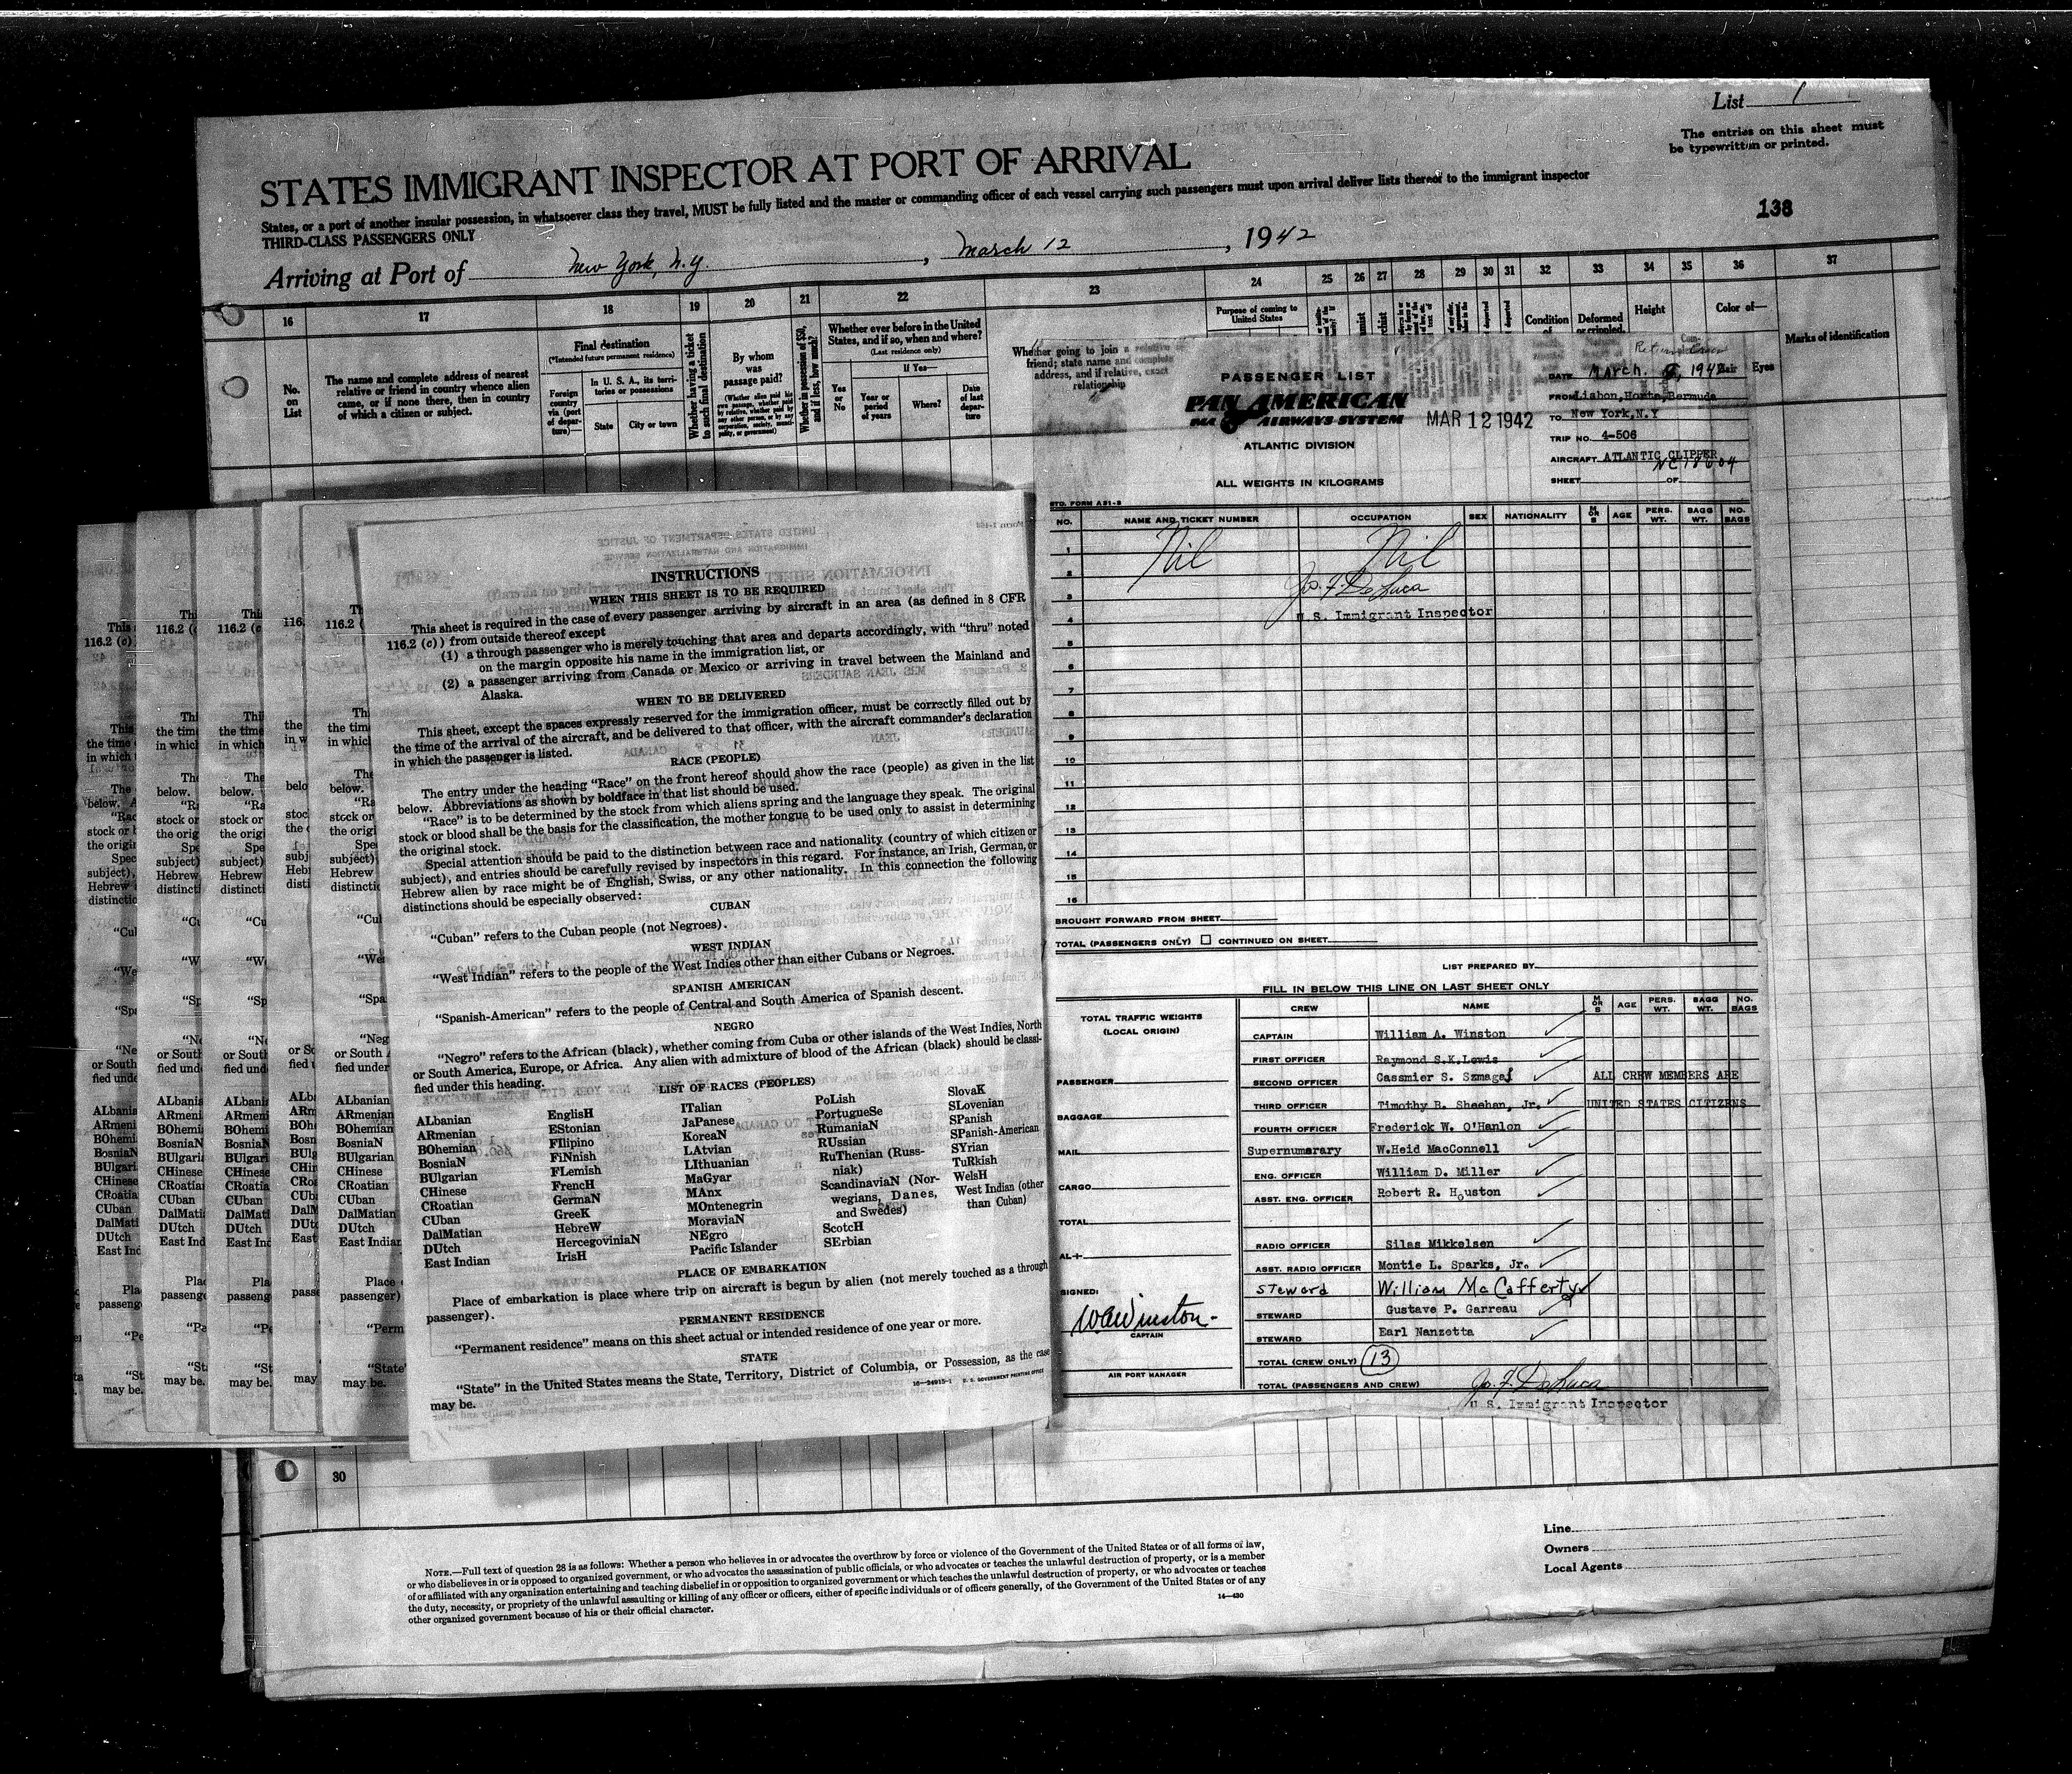 List 1
The entries on this sheet must
be typewritten or printed.
STATES IMMIGRANT INSPECTOR AT PORT OF ARRIVAL
States, or a port of another insular possession, in whatsoever class they travel, MUST be fully listed and the master or commanding officer of each vessel carrying such passengers must upon arrival deliver lists thereof to the immigrant inspector
THIRD-CLASS PASSENGERS ONLY
138
Arriving at Port of New York, N.Y. , March 12 , 1942
16 17 18 19 20 21 22 23 24 25 26 27 28 29 30 31 32 33 34 35 36 37
No.
on
List
The name and complete address of nearest
relative or friend in country whence alien
came, or if none there, then in country
of which a citizen or subject.
Final destination
(*Intended future permanent residence)
Foreign
country
via (port
of depar-
ture)—
In U. S. A., its terri-
tories or possessions
State City or town
Whether having a ticket
to such final destination
By whom
was
passage paid?
(Whether alien paid his
own passage, whether paid
by relative, whether paid by
any other person, or by any
corporation, society, munici-
pality, or government)
Whether in possession of $50,
and if less, how much?
Whether ever before in the United
States, and if so, when and where?
(Last residence only)
Yes
or
No
If Yes—
Year or
period
of years
Where?
Date
of last
depar-
ture
Whether going to join a relative or
friend; state name and complete
address, and if relative, exact
relationship
Purpose of coming to
United States
Condition
of
Deformed
or crippled.
Height
Color of—
Hair Eyes
Marks of identification
PASSENGER LIST
PAN AMERICAN
PAA AIRWAYS SYSTEM
MAR 12 1942
ATLANTIC DIVISION
ALL WEIGHTS IN KILOGRAMS
DATE March. , 1942
FROM Lisbon, Horta, Bermuda
TO New York, N.Y
TRIP NO. 4-506
AIRCRAFT ATLANTIC CLIPPER
NC18604
SHEET OF
STD. FORM A21-S
NO. NAME AND TICKET NUMBER OCCUPATION SEX NATIONALITY M OR S AGE PERS. WT. BAGG WT. NO. BAGS
1 Nil Nil
2
3 Jo. F. DeLuca
4 U.S. Immigrant Inspector
5
6
7
8
9
10
11
12
13
14
15
16
BROUGHT FORWARD FROM SHEET
TOTAL (PASSENGERS ONLY) CONTINUED ON SHEET
LIST PREPARED BY
FILL IN BELOW THIS LINE ON LAST SHEET ONLY
TOTAL TRAFFIC WEIGHTS
(LOCAL ORIGIN)
CREW NAME M OR S AGE PERS. WT. BAGG WT. NO. BAGS
CAPTAIN William A. Winston
FIRST OFFICER Raymond S.K.Lewis
SECOND OFFICER Cassmier S. Szmagaj ALL CREW MEMBERS ARE
THIRD OFFICER Timothy B. Sheehan, Jr. UNITED STATES CITIZENS
FOURTH OFFICER Frederick W. O'Hanlon
Supernumarary W.Heid MacConnell
ENG. OFFICER William D. Miller
ASST. ENG. OFFICER Robert R. Houston
RADIO OFFICER Silas Mikkelsen
ASST. RADIO OFFICER Montie L. Sparks, Jr.
Steward William McCafferty
STEWARD Gustave P. Garreau
STEWARD Earl Nanzetta
TOTAL (CREW ONLY) 13
TOTAL (PASSENGERS AND CREW)
Jo. F. DeLuca
U.S. Immigrant Inspector
PASSENGER
BAGGAGE
MAIL
CARGO
TOTAL
AL+
SIGNED:
WAWinston
CAPTAIN
AIR PORT MANAGER
INSTRUCTIONS
WHEN THIS SHEET IS TO BE REQUIRED
This sheet is required in the case of every passenger arriving by aircraft in an area (as defined in 8 CFR
116.2 (c)) from outside thereof except
(1) a through passenger who is merely touching that area and departs accordingly, with “thru” noted
on the margin opposite his name in the immigration list, or
(2) a passenger arriving from Canada or Mexico or arriving in travel between the Mainland and
Alaska.
WHEN TO BE DELIVERED
This sheet, except the spaces expressly reserved for the immigration officer, must be correctly filled out by
the time of the arrival of the aircraft, and be delivered to that officer, with the aircraft commander's declaration
in which the passenger is listed.
RACE (PEOPLE)
The entry under the heading “Race” on the front hereof should show the race (people) as given in the list
below. Abbreviations as shown by boldface in that list should be used.
“Race” is to be determined by the stock from which aliens spring and the language they speak. The original
stock or blood shall be the basis for the classification, the mother tongue to be used only to assist in determining
the original stock.
Special attention should be paid to the distinction between race and nationality (country of which citizen or
subject), and entries should be carefully revised by inspectors in this regard. For instance, an Irish, German, or
Hebrew alien by race might be of English, Swiss, or any other nationality. In this connection the following
distinctions should be especially observed:
CUBAN
“Cuban” refers to the Cuban people (not Negroes).
WEST INDIAN
“West Indian” refers to the people of the West Indies other than either Cubans or Negroes.
SPANISH AMERICAN
“Spanish-American” refers to the people of Central and South America of Spanish descent.
NEGRO
“Negro” refers to the African (black), whether coming from Cuba or other islands of the West Indies, North
or South America, Europe, or Africa. Any alien with admixture of blood of the African (black) should be classi-
fied under this heading.
LIST OF RACES (PEOPLES)
ALbanian
ARmenian
BOhemian
BosniaN
BUlgarian
CHinese
CRoatian
CUban
DalMatian
DUtch
East Indian
EnglisH
EStonian
FIlipino
FiNnish
FLemish
FrencH
GermaN
GreeK
HebreW
HercegoviniaN
IrisH
ITalian
JaPanese
KoreaN
LAtvian
LIthuanian
MaGyar
MAnx
MOntenegrin
MoraviaN
NEgro
Pacific Islander
PoLish
PortugueSe
RumaniaN
RUssian
RuThenian (Russ-
niak)
ScandinaviaN (Nor-
wegians, Danes,
and Swedes)
ScotcH
SErbian
SlovaK
SLovenian
SPanish
SPanish-American
SYrian
TuRkish
WelsH
West Indian (other
than Cuban)
PLACE OF EMBARKATION
Place of embarkation is place where trip on aircraft is begun by alien (not merely touched as a through
passenger).
PERMANENT RESIDENCE
“Permanent residence” means on this sheet actual or intended residence of one year or more.
STATE
“State” in the United States means the State, Territory, District of Columbia, or Possession, as the case
may be.
16—24915-1 U. S. GOVERNMENT PRINTING OFFICE
30
NOTE.—Full text of question 28 is as follows: Whether a person who believes in or advocates the overthrow by force or violence of the Government of the United States or of all forms of law,
or who disbelieves in or is opposed to organized government, or who advocates the assassination of public officials, or who advocates or teaches the unlawful destruction of property, or is a member
of or affiliated with any organization entertaining and teaching disbelief in or opposition to organized government or which teaches the unlawful destruction of property, or who advocates or teaches
the duty, necessity, or propriety of the unlawful assaulting or killing of any officer or officers, either of specific individuals or of officers generally, of the Government of the United States or of any
other organized government because of his or their official character.
14—430
Line
Owners
Local Agents